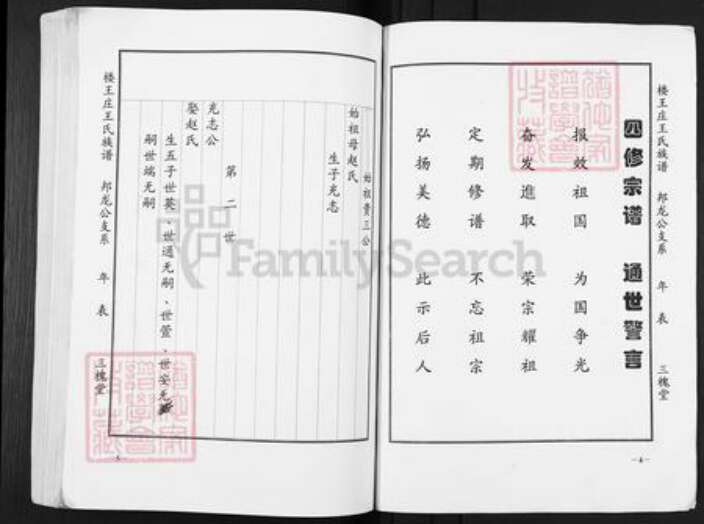 楼王庄王氏族谱 邦龙公支系 年表 三槐堂
四修宗谱 通世警言
报效祖国 为国争光
奋发進取 荣宗耀祖
定期修谱 不忘祖宗
弘扬美德 此示后人
—4—
始祖贵三公
始祖母赵氏
生子光志
第二世
光志公
娶赵氏
生五子世英、世通无嗣、世萱、世安无
嗣世端无嗣
楼王庄王氏族谱 邦龙公支系 年表 三槐堂
FamilySearch